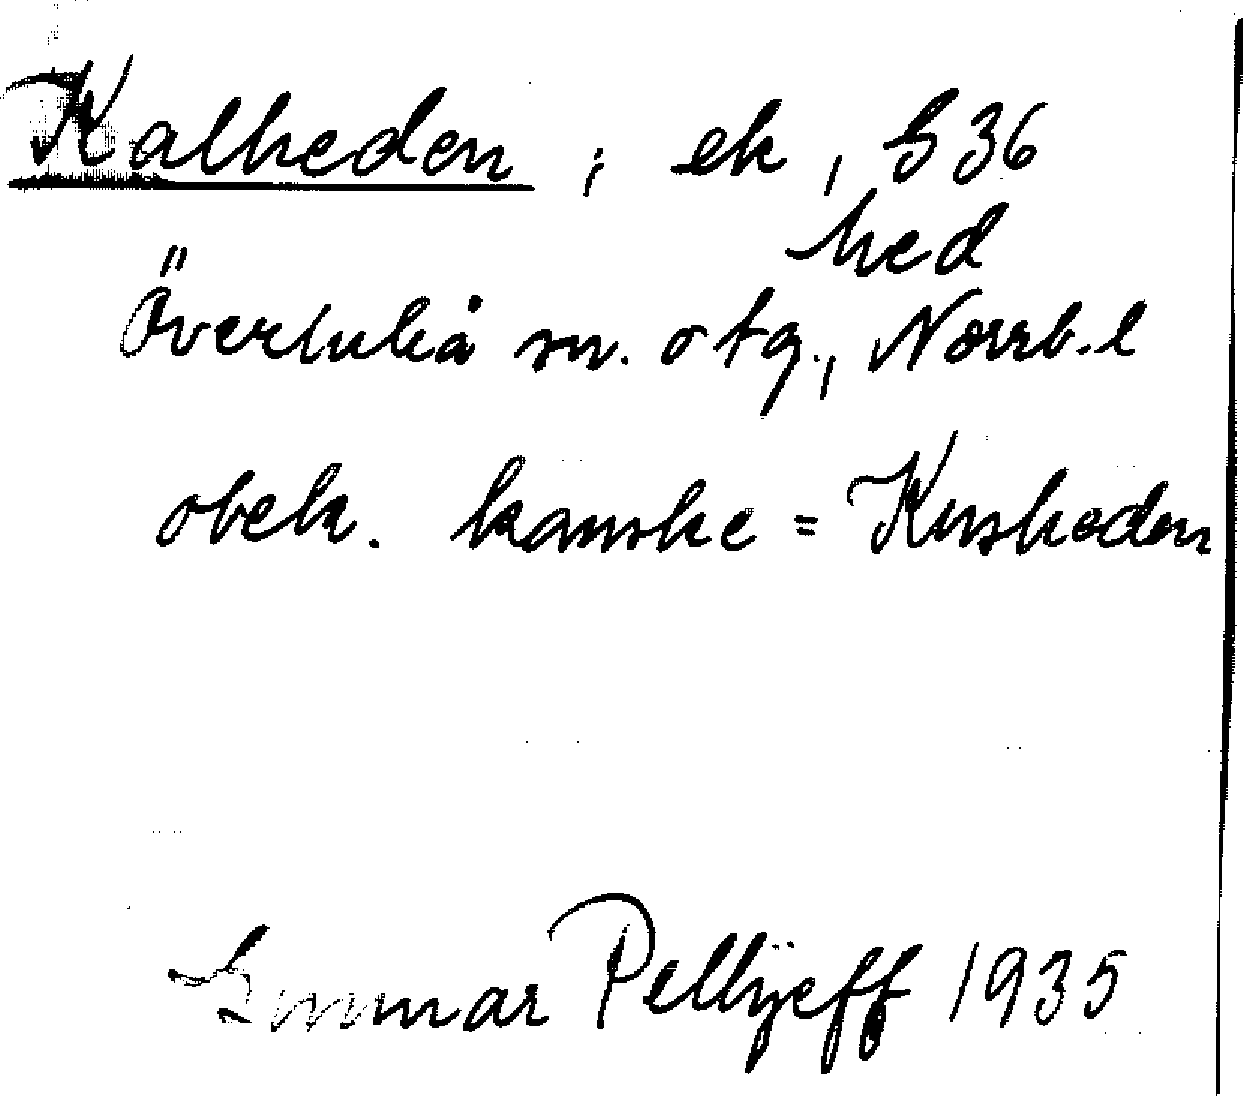 Kalheden, ek, S36
hed
Överluleå sn. o tg., Norrb. l
obek. kanske = Kusheden
Gunnar Pellijeff 1935